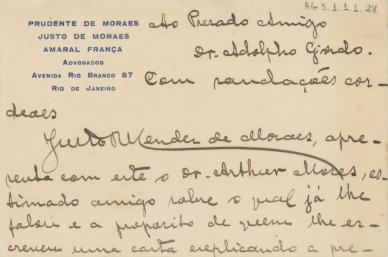 AG 3.1.1.1.28
PRUDENTE DE MORAES
JUSTO DE MORAES
AMARAL FRANÇA
ADVOGADOS
AVENIDA RIO BRANCO 87
RIO DE JANEIRO
Ao Presado Amigo
Dr. Adolpho Gordo.
Com saudações cor-
deaes
Justo Mendes de Moraes, apre-
senta com este o Dr. Arthur Moses, es-
timado amigo sobre o qual já lhe
falou e a proposito de quem lhe es-
creveu uma carta explicando a pre-